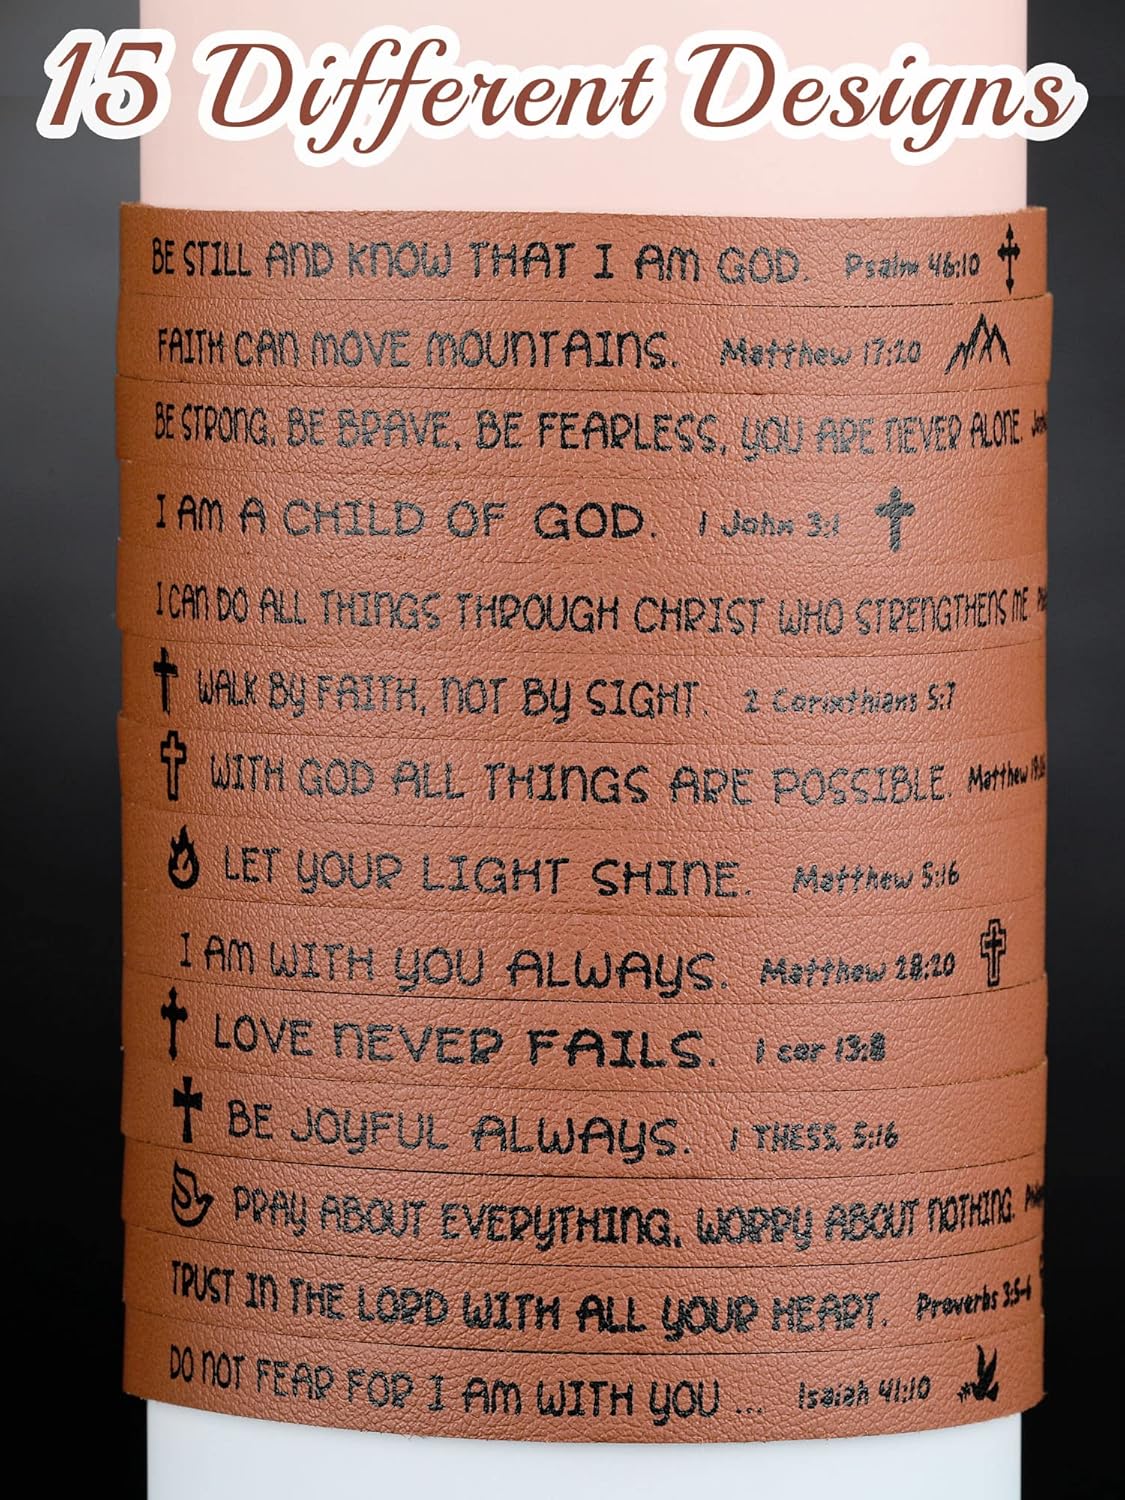 15 Different Designs
BE STILL AND KNOW THAT I AM GOD. Psalm 46:10
FAITH CAN MOVE MOUNTAINS. Matthew 17:20
BE STRONG, BE BRAVE, BE FEARLESS, YOU ARE NEVER ALONE.
I AM A CHILD OF GOD. 1 John 3:1
I CAN DO ALL THINGS THROUGH CHRIST WHO STRENGTHENS ME
WALK BY FAITH, NOT BY SIGHT. 2 Corinthians 5:7
WITH GOD ALL THINGS ARE POSSIBLE. Matthew
LET YOUR LIGHT SHINE. Matthew 5:16
I AM WITH YOU ALWAYS. Matthew 28:20
LOVE NEVER FAILS. 1 cor 13:8
BE JOYFUL ALWAYS. 1 THESS, 5:16
PRAY ABOUT EVERYTHING, WORRY ABOUT NOTHING.
TRUST IN THE LORD WITH ALL YOUR HEART. Proverbs 3:5-6
DO NOT FEAR FOR I AM WITH YOU ... Isaiah 41:10